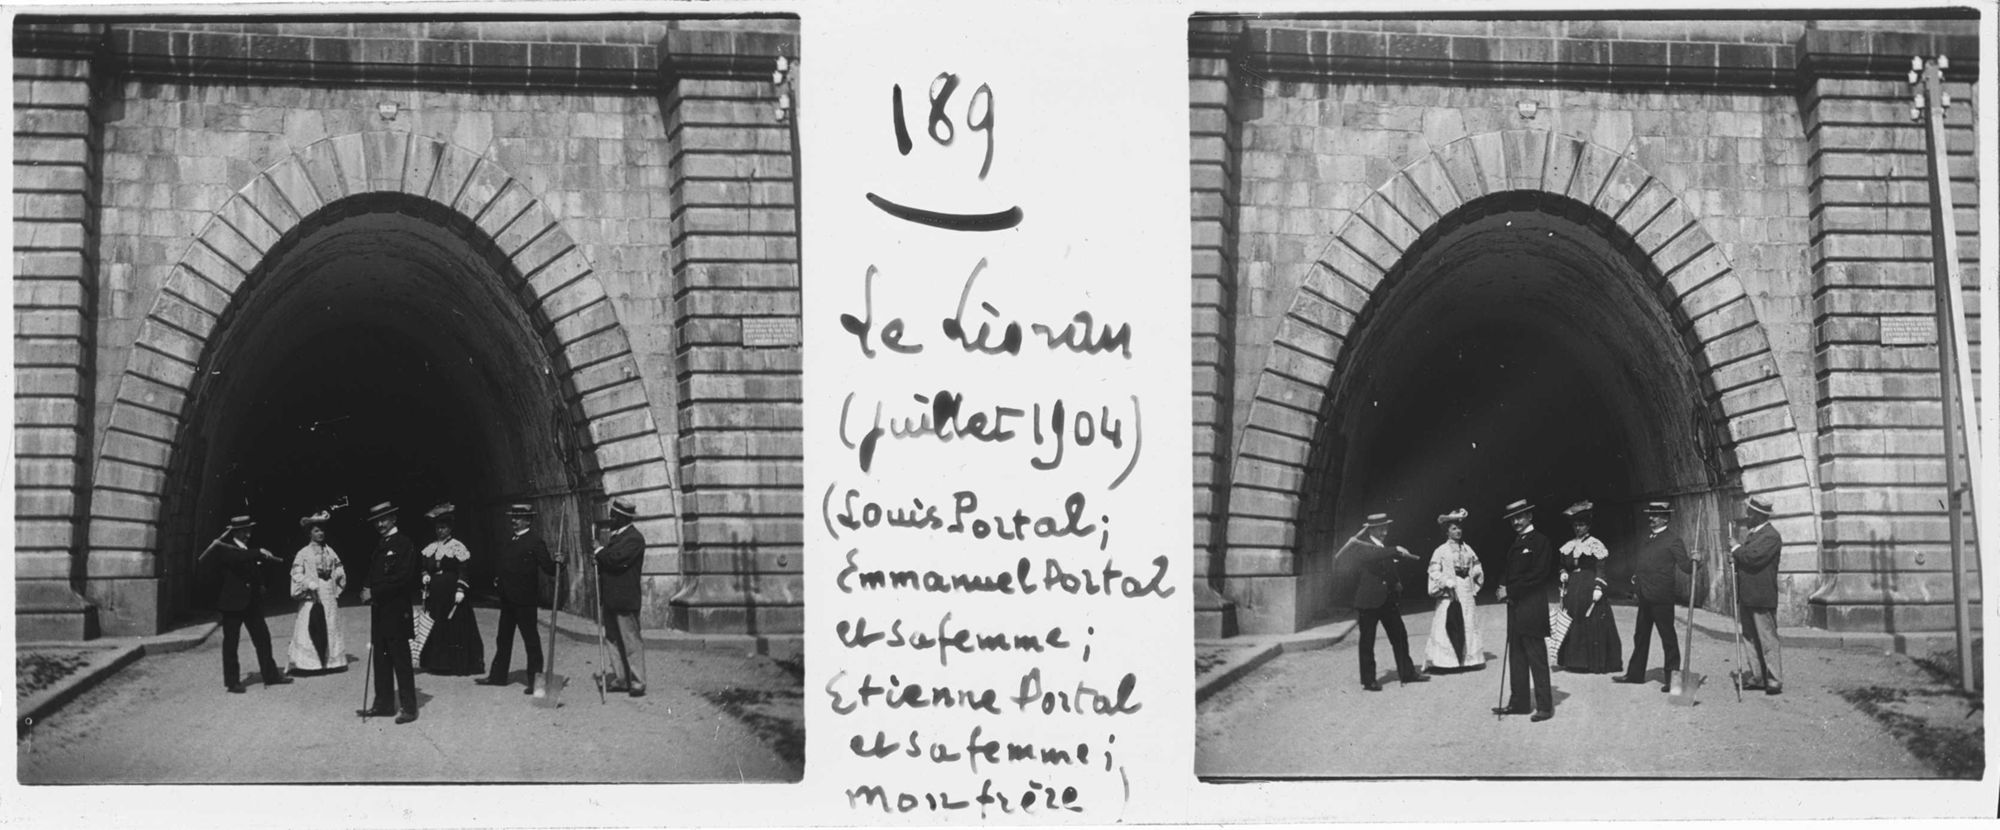 189
Le Lioran
(juillet 1904)
(Louis Portal;
Emmanuel Portal
et sa femme;
Etienne Portal
et sa femme;
mon frère)